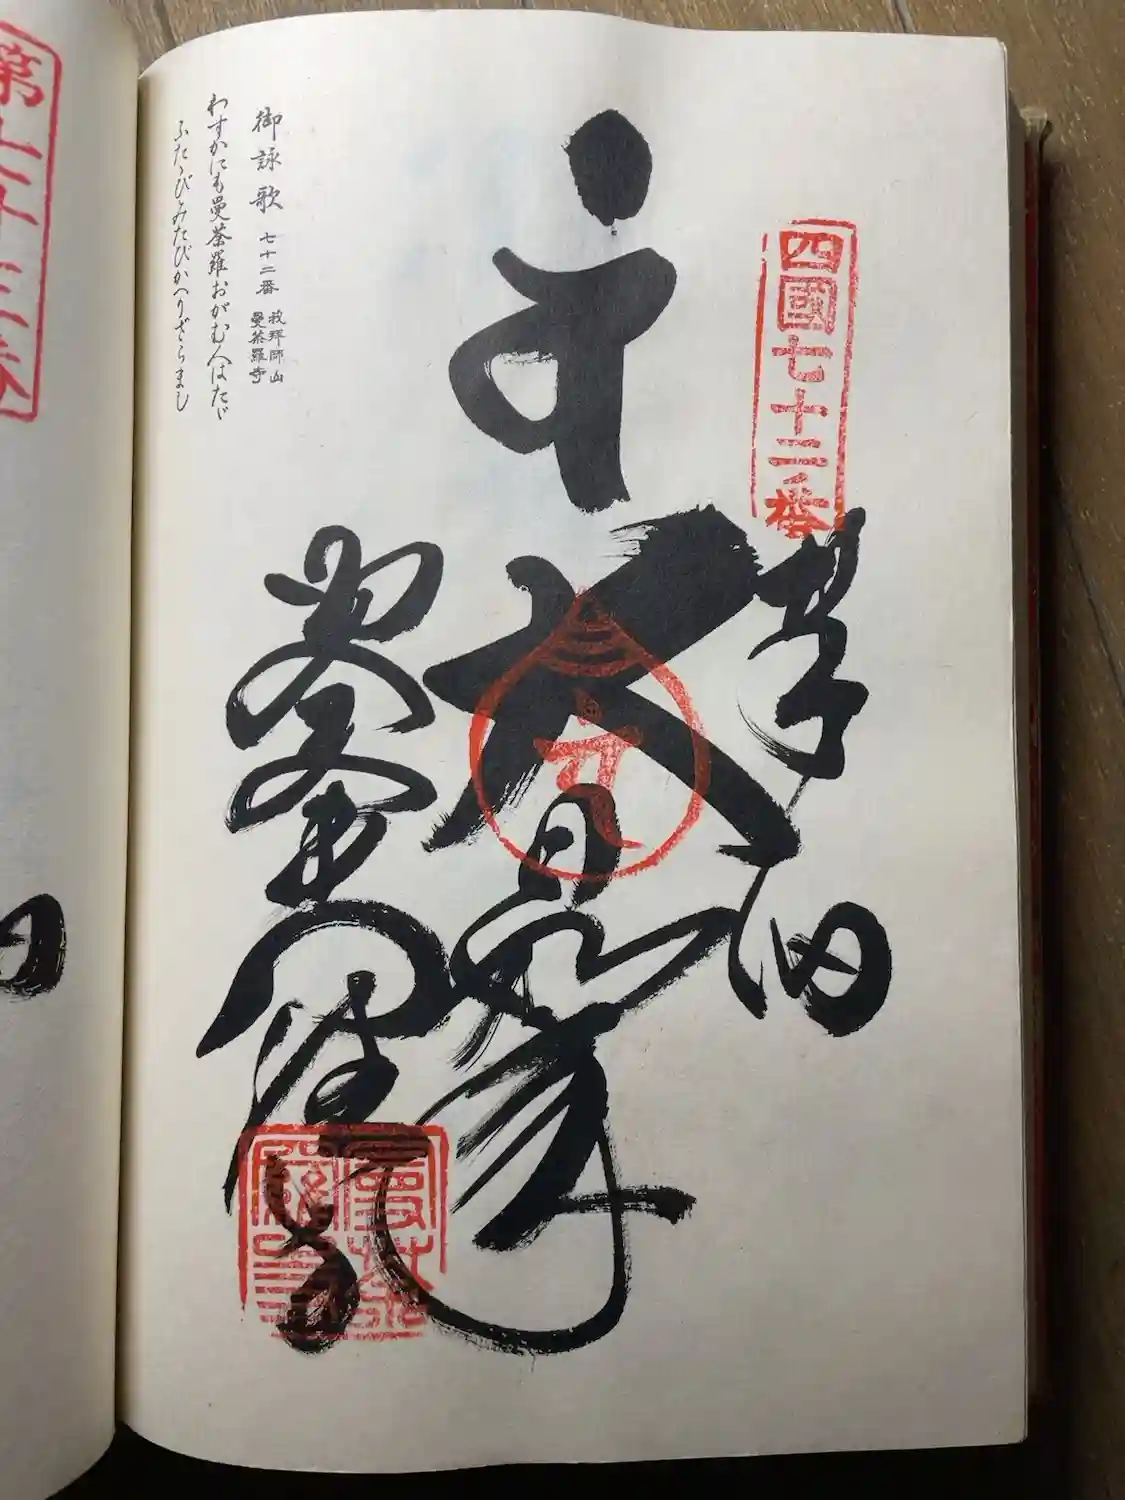 四國七十二番
奉納
大日如来
曼荼羅寺
御詠歌 七十二番 我拝師山 曼荼羅寺
わすかにも曼荼羅おがむ人はたゞ
ふたゝびみたびかへりざらまし